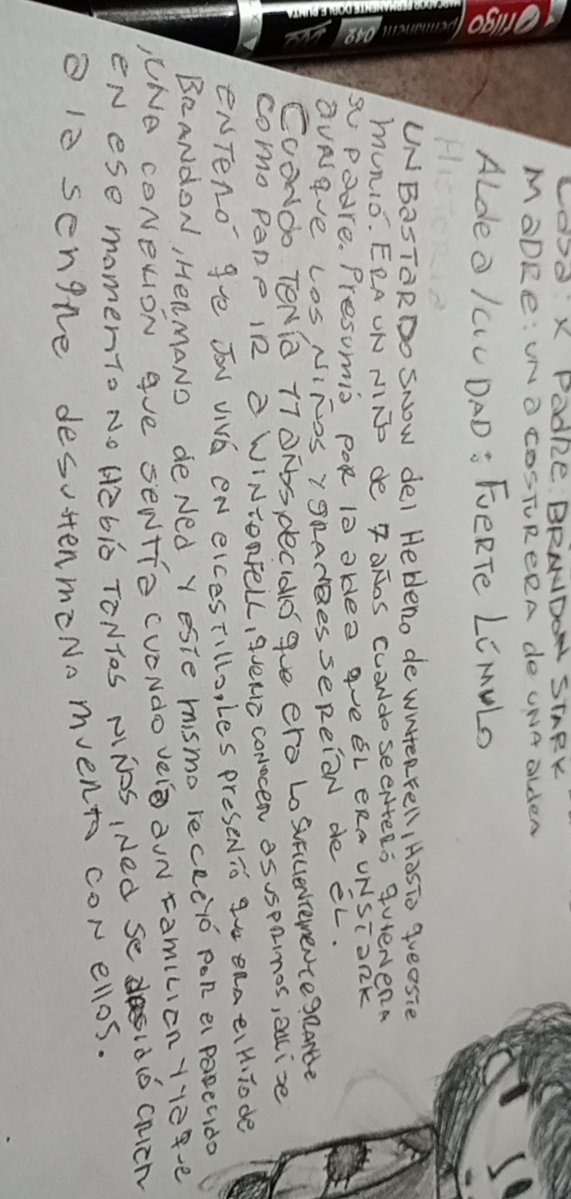 MARCADOR PERMANENTE DOBLE PUNTA
filgo permanent 042
Casa: X Padre BRANDON STARK
MADRE: UNA COSTURERA de UNA aldea
ALdea/CIUDAD: FUERTE LÚMULO
HISTORIA
UN BASTARDO SNOW del Hedero de WINTERFELL, HASTA que este
MURIÓ. ERA UN NIÑO de 7 AÑOS CUANDO SE ENTERÓ quien ERA
su padre. Presumió por la aldea que ÉL ERA UN STARK
aunque LOS NIÑOS Y GRANDES SE REÍAN de ÉL.
Cuando TENÍA 11 AÑOS, decidió que era LO SUFICIENTEMENTE GRANDE
COMO PARA IR a WINTORFELL, quería CONOCER a SUS PRIMOS, allí se
ENTERÓ que JON vivía EN el CASTILLO, Les presentó que era el Hijo de
BRANDON, HERMANO de NED Y este mismo le creyó por el parecido
, UNA conexión que SENTÍA CUANDO veía a UN FAMILIAR Y ya que
EN ese momento NO HABÍA TANTOS NIÑOS, Ned se decidió CRIAR
a la SANGRE de SU HERMANO MUERTO CON ELLOS.